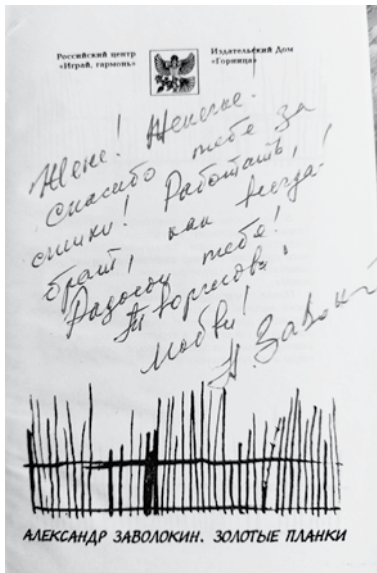 Российский центр
«Играй, гармонь»
Издательский Дом
«Горница»
Жене!
Спасибо тебе за
снимки! Работать,
брат, как всегда!
Радости тебе!
Творчества!
Любви!
А. Заволокин
АЛЕКСАНДР ЗАВОЛОКИН. ЗОЛОТЫЕ ПЛАНКИ